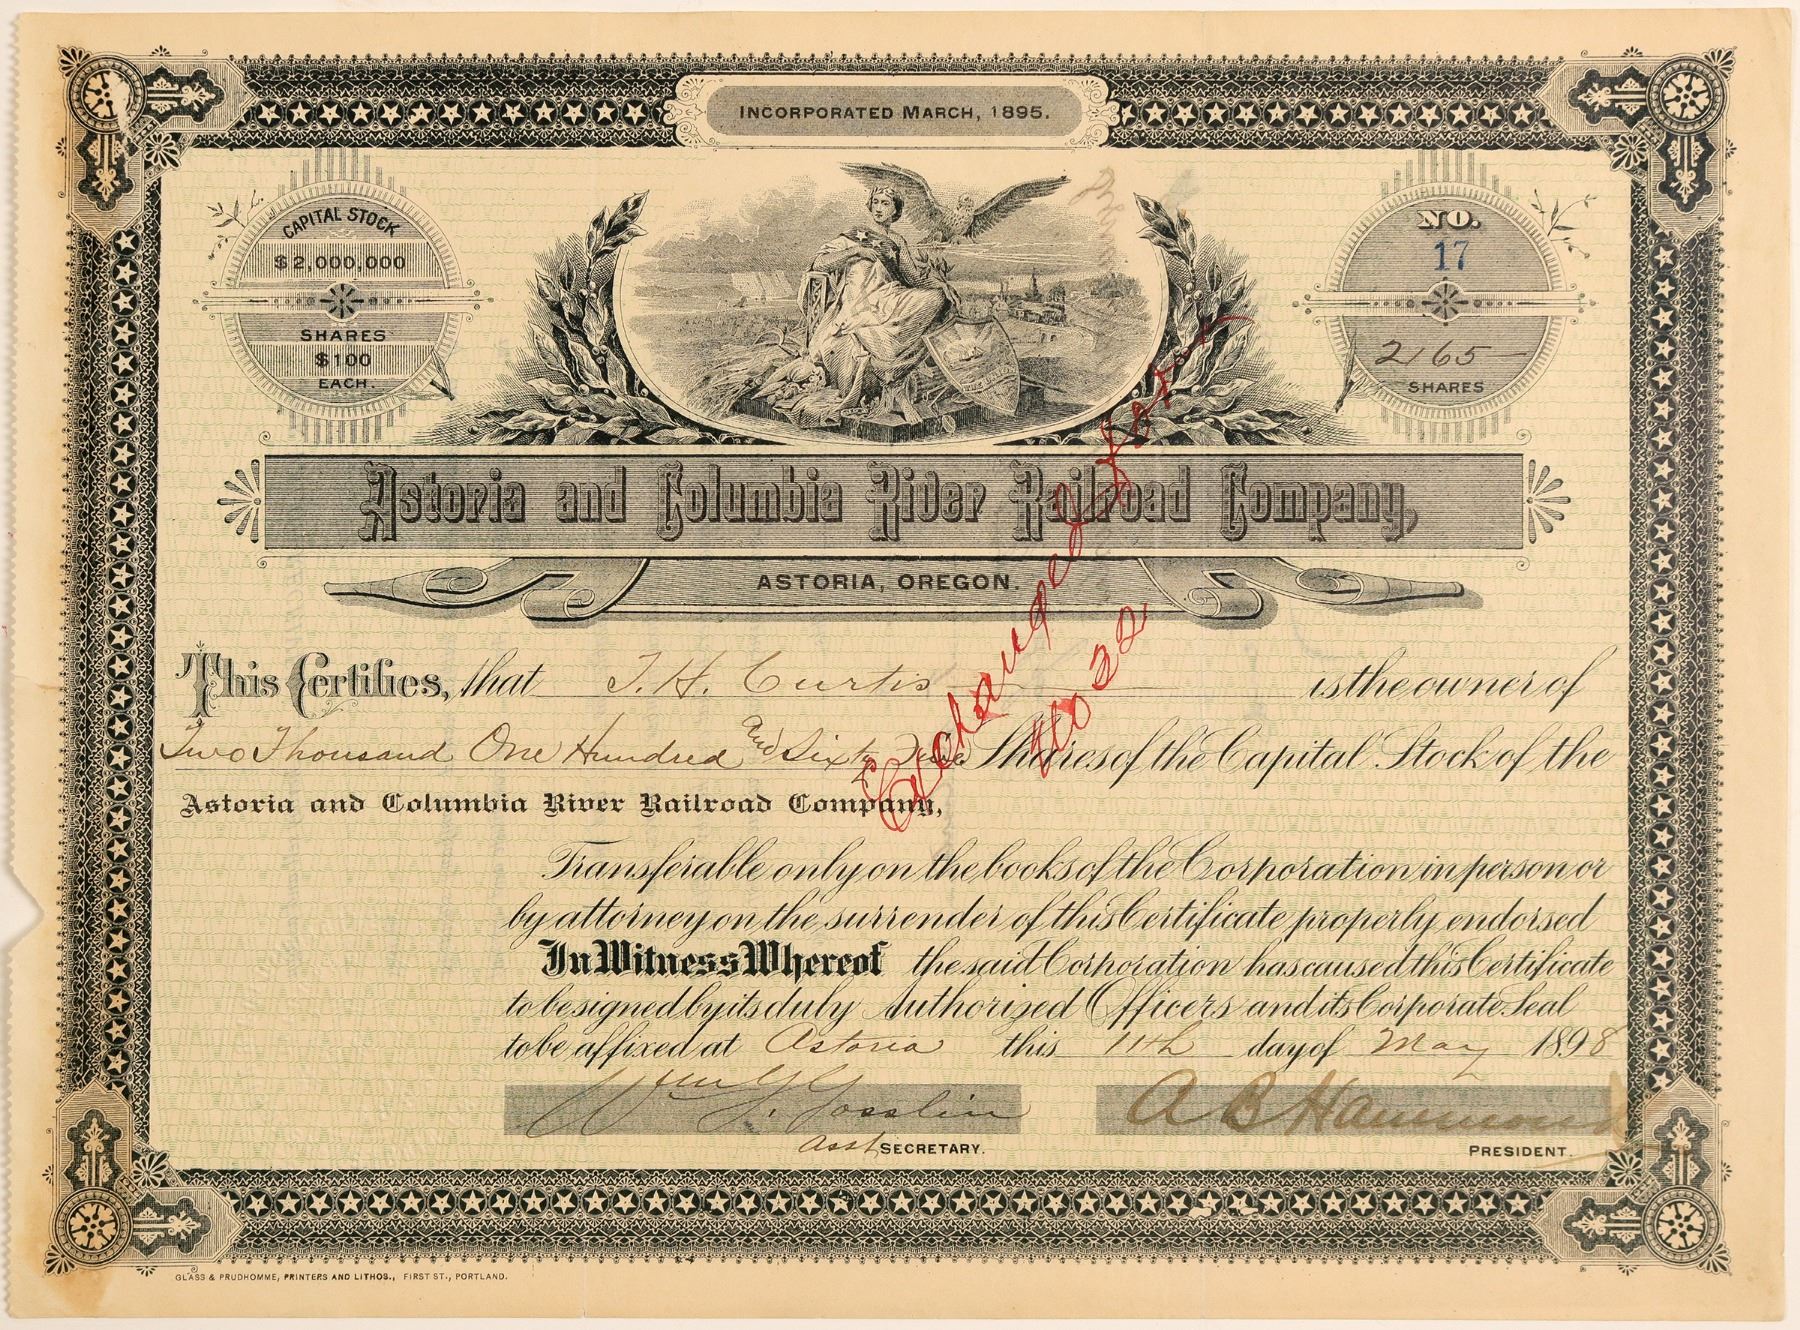 INCORPORATED MARCH, 1895.
CAPITAL STOCK
$2,000,000
SHARES
$100
EACH.
NO.
17
2165
SHARES
Astoria and Columbia River Railroad Company,
ASTORIA, OREGON.
This Certifies, that T. H. Curtis is the owner of
Two Thousand One Hundred and Sixty Five Shares of the Capital Stock of the
Astoria and Columbia River Railroad Company,
Transferable only on the books of the Corporation in person or
by attorney on the surrender of this Certificate properly endorsed
In Witness Whereof the said Corporation has caused this Certificate
to be signed by its duly Authorized Officers and its Corporate Seal
to be affixed at Astoria this 11th day of May 1898
A B Hammond
Asst SECRETARY.
PRESIDENT.
Exchanged for
No 32
GLASS & PRUDHOMME, PRINTERS AND LITHOS., FIRST ST., PORTLAND.